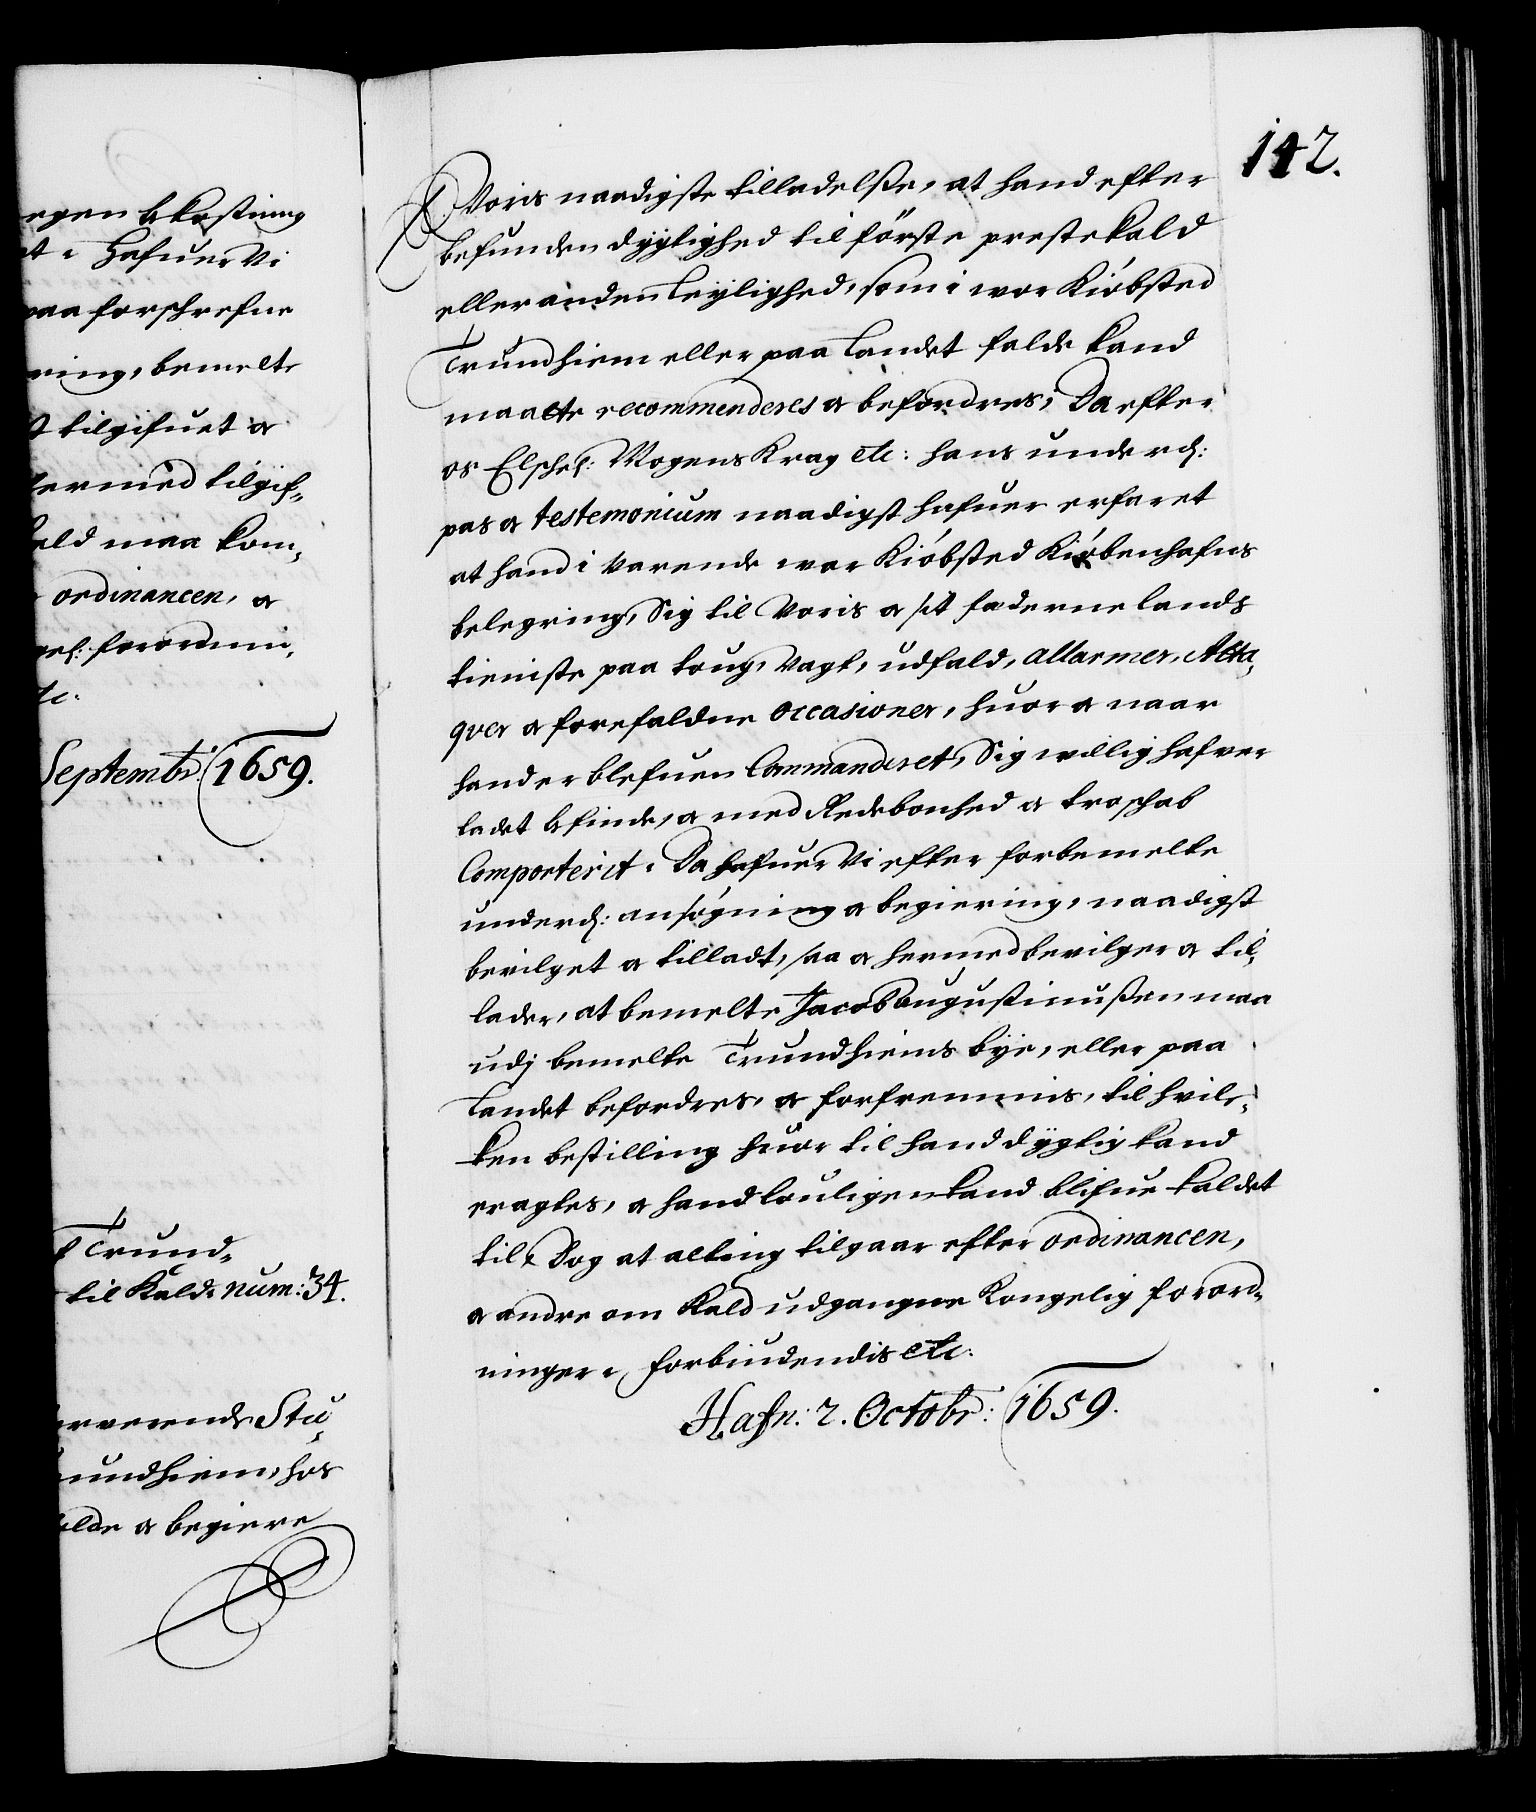 egen bekostning
t. Hafuer Vi
paa forschrefne
ning, bemelte
t tilgifuet och
hermed tilgif¬
ald maa kom¬
ordinancen, och
gel: forordni¬
etc.
Septembr: 1659.
Trund¬
til Kald. num: 34.
erværende Stu¬
undhiem, hos
alde och begiere
142.
Voris naadigste tilladelsse, at hand efter
befunden dygtighed til förste prestekald
eller anden leylighed, som i vor Kiöbsted
Trundhiem eller paa Landet falde kand
maatte recommenderes och befordres, Da efter
os Elschel: Mogens Krag etc: hans underd:
pas och testemonium naadigst hafuer erfaret
at hand i varende vor Kiöbsted Kiöbenhafns
belegring, Sig til Voris och sit fæderne lands
tieniste paa toug, vagt, udfald, allarmer, Atta¬
quer och forefaldne occasioner, huor och naar
hand er blefuen Commanderet, Sig willig hafver
ladet befinde, och med Redebonhed och troschab
Comporterit. Da hafuer Vi efter forbemelte
underd: ansögning och begiering, naadigst
bevilget och tilladt, saa och hermed bevilger och til¬
lader, at bemelte Jacob Augustinussen maa
udj bemelte Trundhiems bye, eller paa
Landet befordres, och forfremmis, til hvil¬
ken bestilling huor til hand dygtig kand
eragtes, och hand louligen kand blifue kaldet
til. Dog at alting tilgaar efter ordinancen,
och andre om Kald udgangne Kongelig forord¬
ninger. Forbiudendis etc:
Hafn: 2. Octobr: 1659.